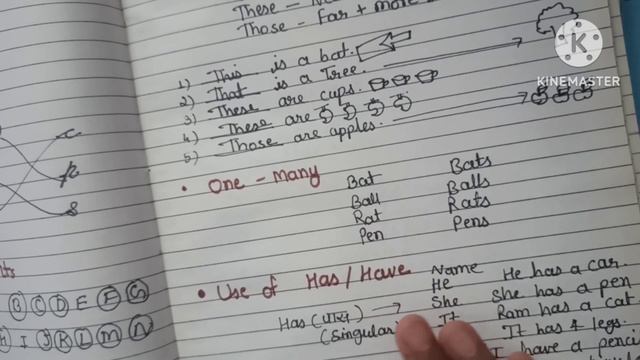 These -
Those - Far + more
1) This is a bat.
2) That is a Tree.
3) These are cups.
4) These are
5) Those are apples.
KINEMASTER
• One - Many
Bat Bats
Ball Balls
Rat Rats
Pen Pens
• Use of Has/Have
Name
He
She
It
Has
(Singular)
He has a car.
She has a pen
Ram has a cat
It has 4 legs.
I have a penci
B C D E F G
H I J K L M N